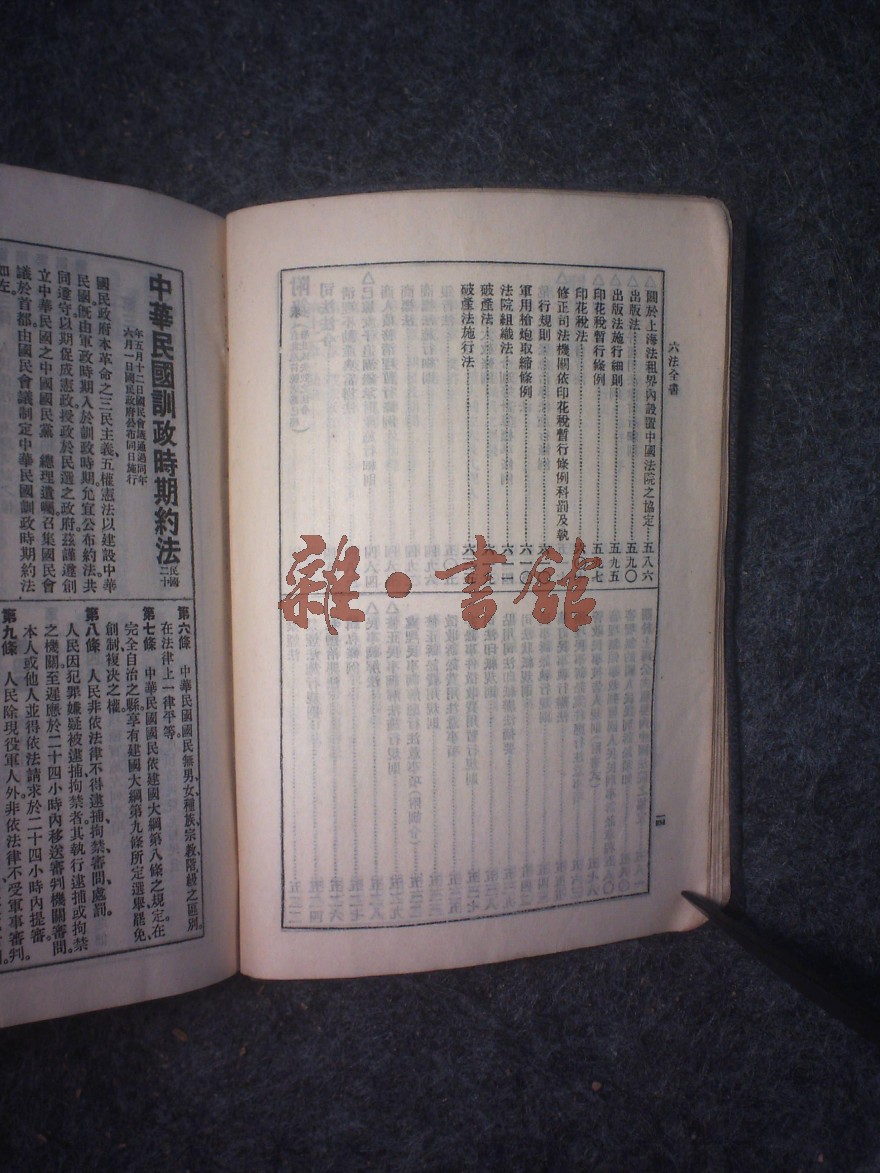 六法全書
關於上海法租界內設置中國法院之協定……五八六
出版法……五九〇
出版法施行細則……五九五
印花稅暫行條例……五九七
印花稅法
修正司法機關依印花稅暫行條例科罰及執
行規則
軍用槍炮取締條例……六一〇
法院組織法
破產法
破產法施行法
一四
雜·書館
中華民國訓政時期約法
民國二十
年五月十二日國民會議通過同年
六月一日國民政府公布同日施行
國民政府本革命之三民主義、五權憲法以建設中華
民國。既由軍政時期入於訓政時期允宜公布約法。共
同遵守以期促成憲政授政於民選之政府茲謹遵創
立中華民國之中國國民黨 總理遺囑召集國民會
議於首都由國民會議制定中華民國訓政時期約法
如左。
第六條 中華民國國民無男女種族、宗教、階級之區別、
在法律上一律平等。
第七條 中華民國國民依建國大綱第八條之規定在
完全自治之縣享有建國大綱第九條所定選舉罷免、
創制複決之權
第八條 人民非依法律不得逮捕拘禁審問處罰。
人民因犯罪嫌疑被逮捕拘禁者其執行逮捕或拘禁
之機關至遲應於二十四小時內移送審判機關審問。
本人或他人並得依法請求於二十四小時內提審。
第九條 人民除現役軍人外非依法律不受軍事審判。